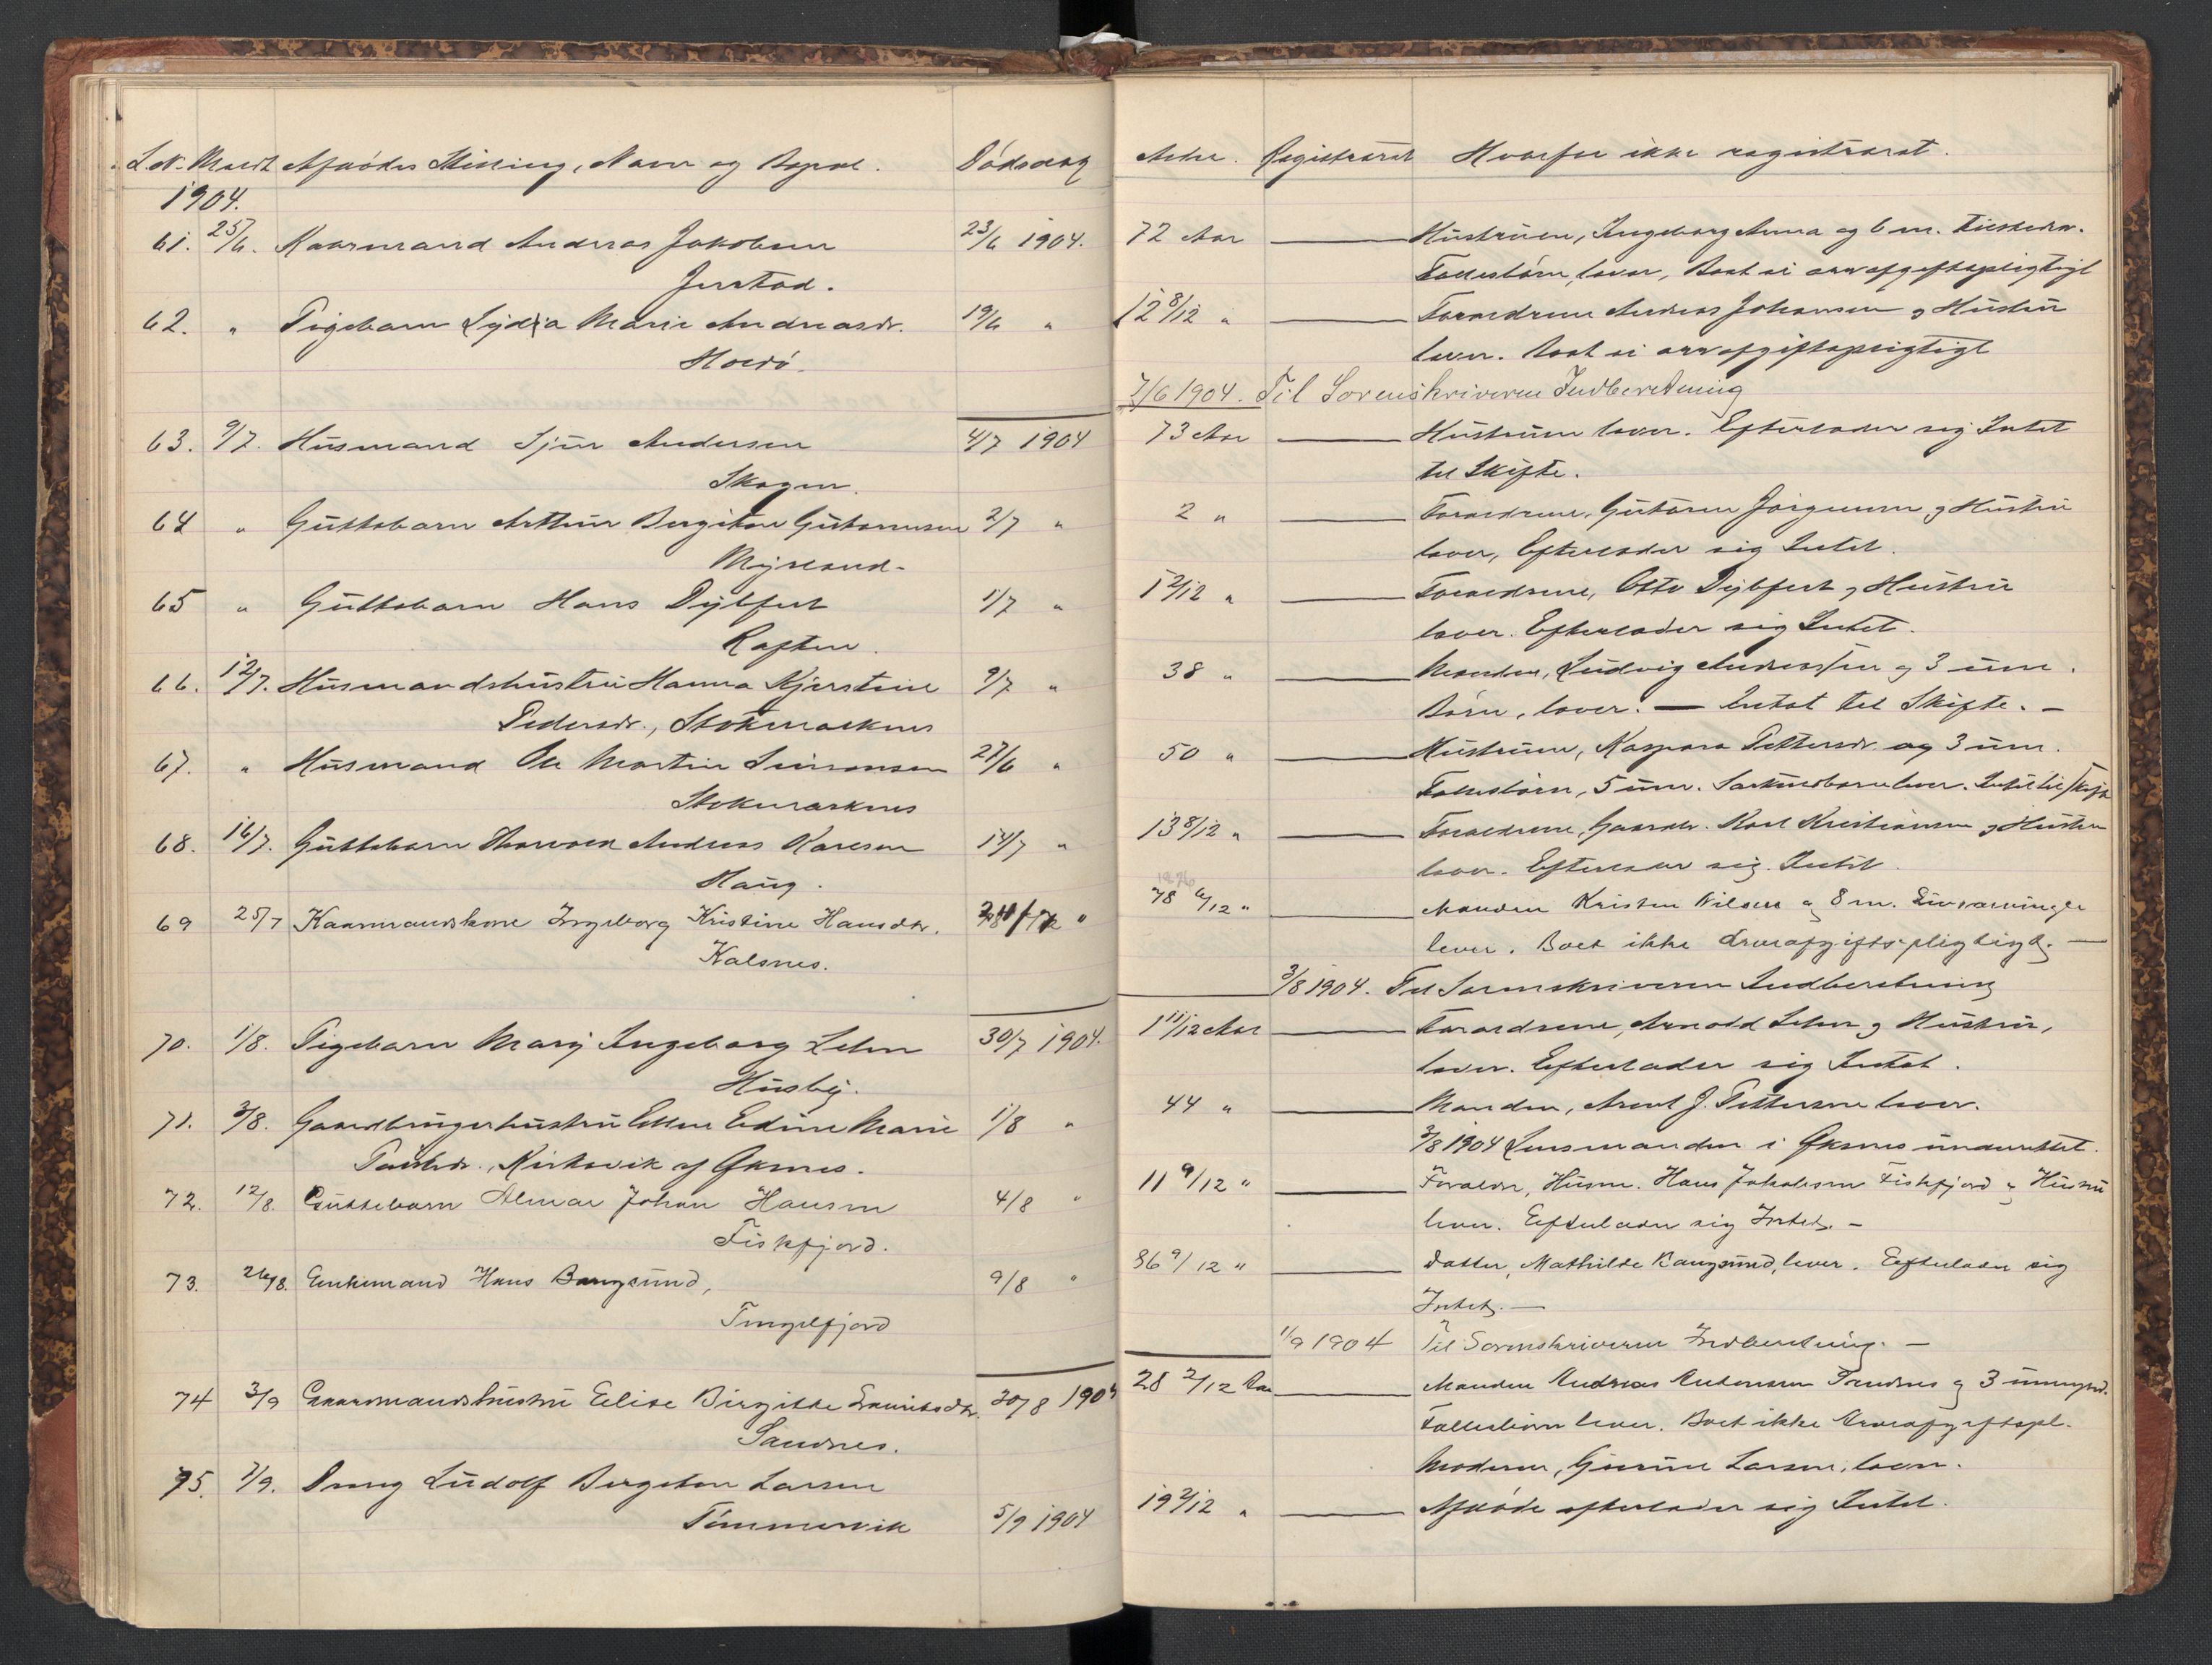 L.N. Meldt Afdødes Stilling, Navn og Bopæl. Dødsdag
1904.
61. 25/6. Kaarmand Andreas Jakobsen 23/6 1904.
Jerstad.
62. " Pigebarn Lydia Marie Andreasdr. 19/6 "
Hovdø.
63. 9/7. Husmand Sjur Andersen 4/7 1904
Skogen.
64 " Guttebarn Arthur Bergiton Gutormsen 2/7 "
Myrland.
65 " Guttebarn Hans Dybfest 1/7 "
Raften.
66. 12/7. Husmandshustru Hanna Kjerstine 9/7 "
Pedersdr., Stokmarknes
67. " Husmand Ole Martin Simonsen 27/6 "
Stokmarknes
68. 16/7. Guttebarn Thorvald Andreas Karlsen 14/7 "
Haug.
69 25/7 Kaarmandskone Ingeborg Kristine Hansdtr. "
Kalsnes.
70. 1/8. Pigebarn Mary Ingeborg Lehn 30/7 1904.
Husby.
71. 3/8. Gaardbrugerhustru Ellen Edine Marie 1/8 "
Kirkevik af Øksnes.
72. 12/8. Guttebarn Almar Johan Hansen 4/8 "
Fiskfjord.
73. 26/8. Enkemand Hans Bangsund, 9/8 "
Tengelfjord
74 3/9 Gaardmandshustru Elise Birgitte Lauritsdtr. 30/8 1904
Sandnes.
75. 7/9. Dreng Ludolf Bergeton Larsen
Tømmervik 5/9 1904
Alder. Registreret Hvorfor ikke registreret.
72 Aar Hustruen, Ingeborg Anna og 6 m.
Fællesbørn, lever, Boet ei arveafgiftspligtigt
12 8/12 " Forældrene Andreas Johansen og Hustru
lever. Boet ei arveafgiftspligtigt
7/6 1904. Til Sorenskriveren Indberetning
73 Aar Hustruen lever. Efterlader sig Intet
til Skifte.
2 " Forældrene, Gutorm Jørgensen og Hustru
lever, Efterlader sig Intet.
1 2/12 " Forældrene, Otto Dybfest og Hustru
lever. Efterlader sig Intet.
38 " Manden, Ludvig Andreassen og 3 um.
Børn, lever. — Intet til Skifte. —
50 " Hustruen, Kaspara Pettersdr. og 3 um.
Fællesbørn, 5 um. Særkuldbørn lever. Intet til Skifte
13 8/12 " Forældrene, Gaardbr. Karl Kristiansen og Hustru
lever. Efterlader sig Intet.
78 6/12 " Manden Kristen Nilsen og 8 m. Livsarvinger
lever. Boet ikke Arveafgiftspligtigt. —
3/8 1904. Til Sorenskriveren Indberetning
1 11/12 Aar Forældrene, Arnold Lehn og Hustru,
lever. Efterlader sig Intet.
44 " Manden, Arent J. Pettersen lever.
3/8 1904 Lensmanden i Øksnes underrettet.
11 9/12 " Forældr, Husm. Hans Jakobsen Fiskfjord og Hustru
lever. Efterlader sig Intet. —
86 9/12 " Datter, Mathilde Bangsund, lever. Efterlader sig
Intet. —
1/9 1904 Til Sorenskriveren Indberetning. —
28 2/12 Aar Manden Andreas Andersen Sandnes og 3 umynd.
Fællesbørn lever. Boet ikke Arveafgiftspl.
Moderen, Gurine Larsen, lever.
19 2/12 " Afdøde efterlader sig Intet.